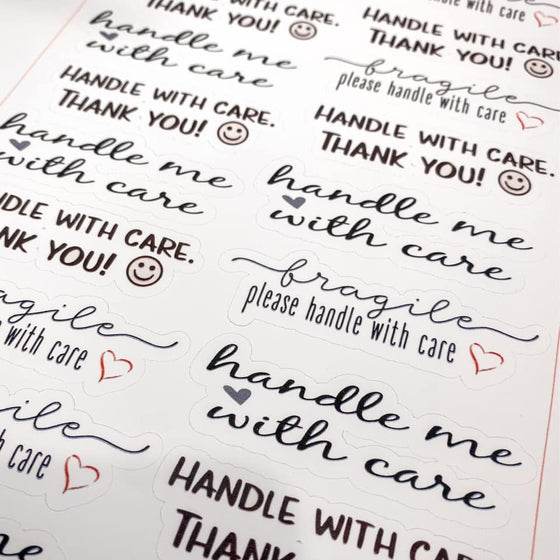 HANDLE WITH CARE.
THANK YOU!
handle me
with care
HANDLE WITH CARE.
THANK YOU!
handle me
with care
NDLE WITH CARE.
NK YOU!
fragile
with care
ile
care
me
handle with care
HANDLE WITH CARE
THANK YOU!
fragile
please handle with care
HANDLE WITH CARE.
THANK YOU!
handle me
with care
fragile
please handle with care
handle me
with care
HANDLE WITH CAR
THANK